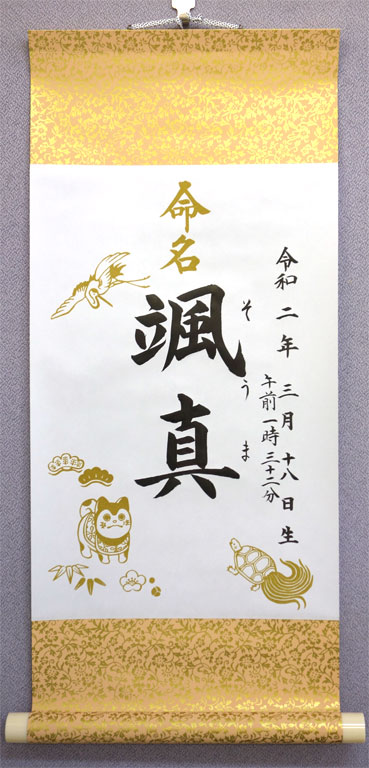 令和二年三月十八日生
午前一時三十二分
命名
颯真
そうま